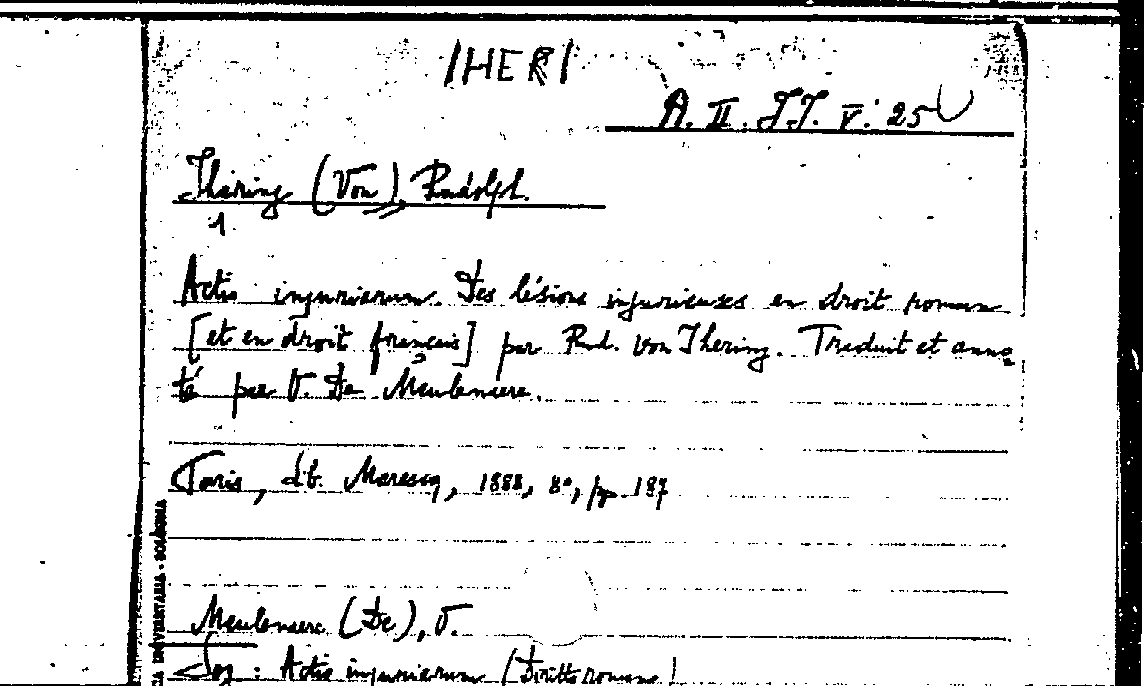 IHERI
A. II. JJ. V. 25
Ihering (Von), Rudolph.
1
Actio injuriarum. Des lésions injurieuses en droit romain
[et en droit français] par Rud. von Ihering. Traduit et anno=
té par O. De Meulenaere.
Paris, Lib. Marescq, 1888, 8°, pp. 187
Meulenaere (De), O.
Sog: Actio injuriarum (Diritto romano)
UNIVERSITARIA - BOLOGNA